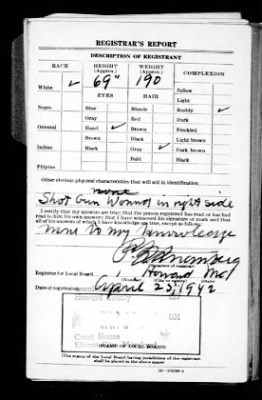 REGISTRAR'S REPORT
DESCRIPTION OF REGISTRANT
RACE HEIGHT (Approx.) WEIGHT (Approx.) COMPLEXION
White ✓ 69" 190 Sallow
EYES HAIR Light
Negro Blue Blonde Ruddy ✓
Gray Red Dark
Oriental Hazel ✓ Brown Freckled
Brown Black Light brown
Indian Black Gray ✓ Dark brown
Bald Black
Filipino
Other obvious physical characteristics that will aid in identification
none
Shot Gun Wound in right side
I certify that my answers are true; that the person registered has read or has had
read to him his own answers; that I have witnessed his signature or mark and that
all of his answers of which I have knowledge are true, except as follows:
None to my knowledge
(Signature of registrar)
Registrar for Local Board 1 Howard Mo
Date of registration April 25, 1942
Court House
(STAMP OF LOCAL BOARD)
(The stamp of the Local Board having jurisdiction of the registrant
shall be placed in the above space.)